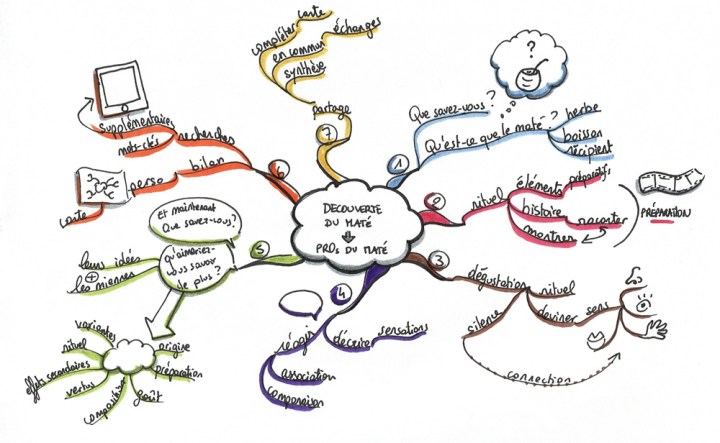 DECOUVERTE
DU MATÉ
PROs DU MATÉ
1
Que savez-vous ?
Qu'est-ce que le maté ?
?
herbe
boisson
récipient
2
rituel
éléments
préparatifs
histoire
raconter
montrer
PRÉPARATION
3
dégustation
rituel
deviner
sens
silence
connection
4
réagir
décrire
sensations
association
comparaison
5
Et maintenant
Que savez-vous?
qu'aimeriez-
vous savoir
de plus ?
leurs idées
+
les miennes
variantes
rituel
effets secondaires
vertus
composition
goût
préparation
origine
6
recherches
supplémentaires
mots-clés
bilan
perso
carte
7
partage
synthèse
en commun
échanges
compléter
carte